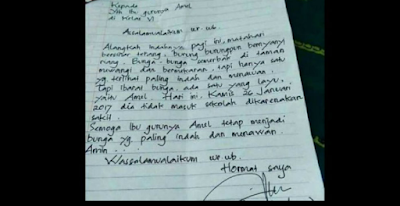 Kepada
Yth Ibu gurunya Amel
di Kelas VI
Assalamualaikum wr. wb.
Alangkah indahnya pagi ini, matahari
bersinar terang, burung burungpun bernyanyi
riang. Bunga-bunga semerbak di taman
mewangi dan bermekaran, tapi hanya satu
yg terlihat paling indah dan menawan.
Tapi ibarat bunga, ada satu yang layu,
yaitu Amel. Hari ini, Kamis 26 Januari
2017 dia tidak masuk sekolah dikarenakan
sakit.
Semoga Ibu gurunya Amel tetap menjadi
bunga yg paling indah dan menawan.
Amin...
Wassalamualaikum wr wb.
Hormat saya